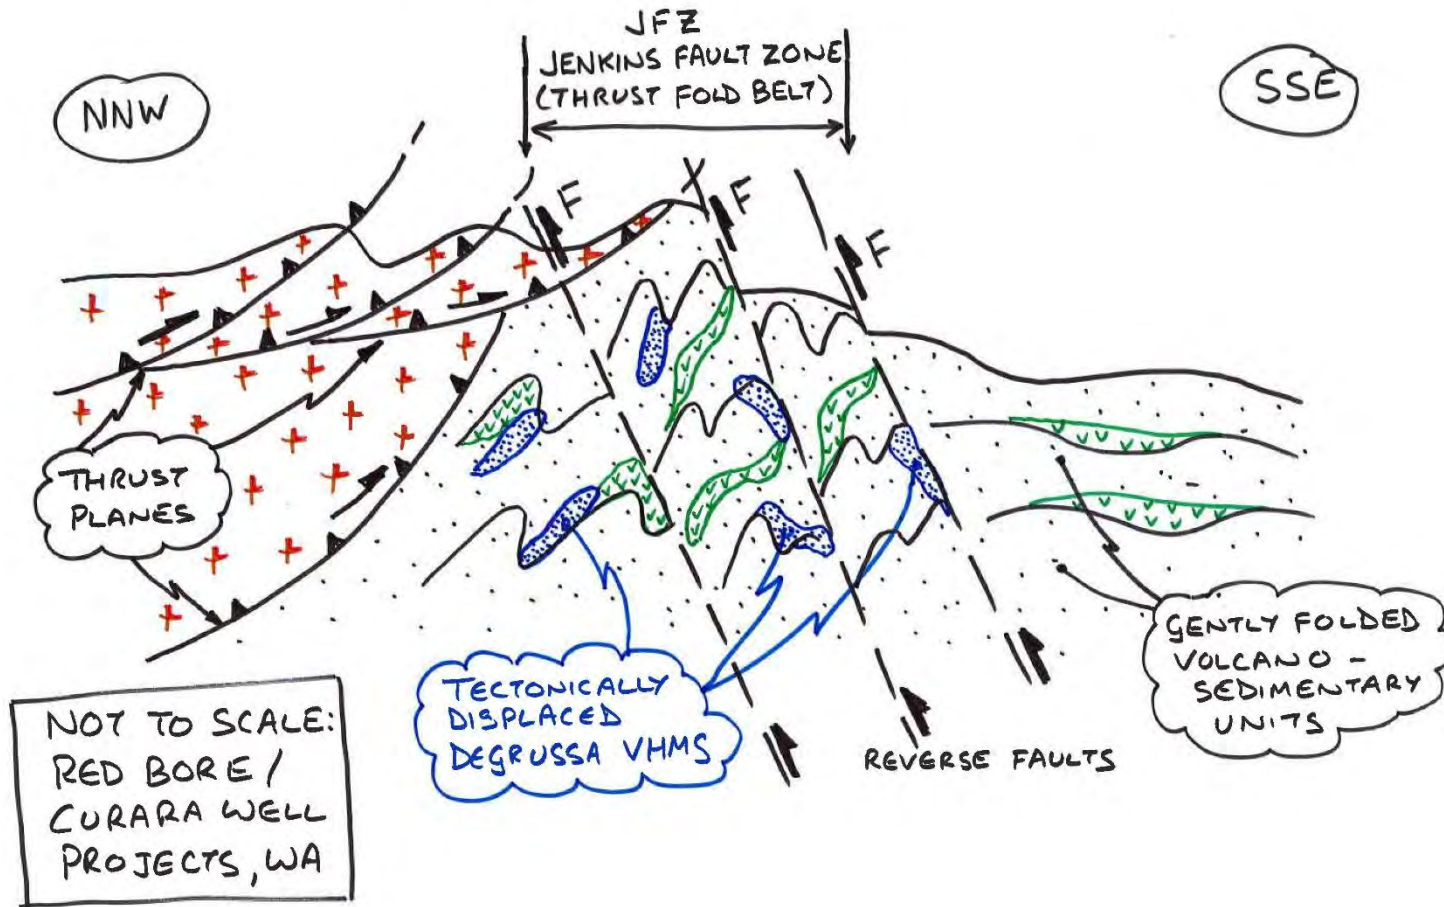 JFZ
JENKINS FAULT ZONE
(THRUST FOLD BELT)
NNW
SSE
F
F
F
THRUST
PLANES
TECTONICALLY
DISPLACED
DEGRUSSA VHMS
REVERSE FAULTS
GENTLY FOLDED
VOLCANO -
SEDIMENTARY
UNITS
NOT TO SCALE:
RED BORE /
CURARA WELL
PROJECTS, WA